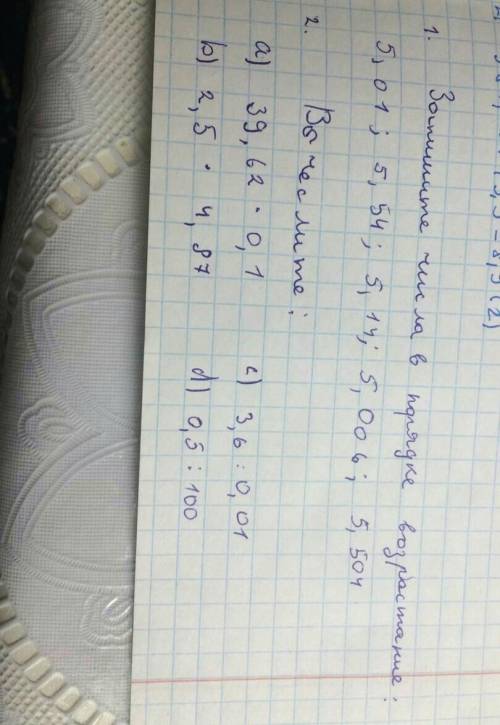 1. Запишите числа в порядке возрастание:
5,01; 5,54; 5,14; 5,006; 5,504
2. Вычеслите:
a) 39,62 · 0,1 c) 3,6 : 0,01
b) 2,5 · 4,87 d) 0,5 : 100